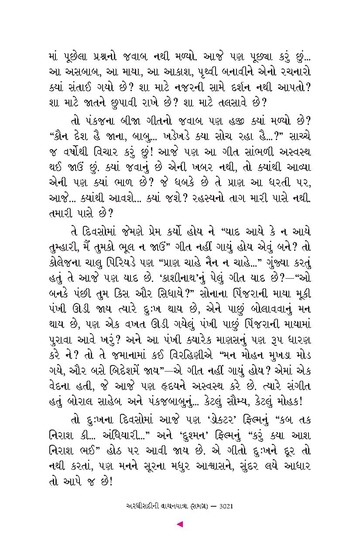 માં પૂછેલા પ્રશ્નનો જવાબ નથી મળ્યો. આજે પણ પૂછ્યા કરું છું...
આ અસબાબ, આ માયા, આ આકાશ, પૃથ્વી બનાવીને એનો રચનારો
ક્યાં સંતાઈ ગયો છે? શા માટે નજરની સામે દર્શન નથી આપતો?
શા માટે જાતને છુપાવી રાખે છે? શા માટે તલસાવે છે?
તો પંકજના બીજા ગીતનો જવાબ પણ હજી ક્યાં મળ્યો છે?
“કૌન દેશ હૈ જાના, બાબુ... ખડેખડે ક્યા સોચ રહા હૈ...?” સાચ્ચે
જ વર્ષોથી વિચાર કરું છું! આજે પણ આ ગીત સાંભળી અસ્વસ્થ
થઈ જાઉં છું. ક્યાં જવાનું છે એની ખબર નથી, તો ક્યાંથી આવ્યા
એની પણ ક્યાં ભાળ છે? જે ધબકે છે તે પ્રાણ આ ધરતી પર,
આજે... ક્યાંથી આવશે... ક્યાં જશે? રહસ્યનો તાગ મારી પાસે નથી.
તમારી પાસે છે?
તે દિવસોમાં જેમણે પ્રેમ કર્યો હોય ને “યાદ આયે કે ન આયે
તુમ્હારી, મૈં તુમકો ભૂલ ન જાઉં” ગીત નહીં ગાયું હોય એવું બને? તો
કૉલેજના ચાલુ પિરિયડે પણ “પ્રાણ ચાહે નૈન ન ચાહે...” ગુંજ્યા કરતું
હતું તે આજે પણ યાદ છે. ‘કાશીનાથ’નું પેલું ગીત યાદ છે?—“ઓ
બનકે પંછી તુમ કિસ ઔર સિધાયે?” સોનાના પિંજરાની માયા મૂકી
પંખી ઊડી જાય ત્યારે દુઃખ થાય છે, એને પાછું બોલાવવાનું મન
થાય છે, પણ એક વખત ઊડી ગયેલું પંખી પાછું પિંજરાની માયામાં
પુરાવા આવે ખરું? અને આ પંખી ક્યારેક માણસનું પણ રૂપ ધારણ
કરે ને? તો તે જમાનામાં કઈ વિરહિણીએ “મન મોહન મુખડા મોડ
ગયે, ઔર બસે બિદેશમેં જાય”—એ ગીત નહીં ગાયું હોય? એમાં એક
વેદના હતી, જે આજે પણ હૃદયને અસ્વસ્થ કરે છે. ત્યારે સંગીત
હતું બોરાલ સાહેબ અને પંકજબાબુનું... કેટલું સૌમ્ય, કેટલું મોહક!
તો દુઃખના દિવસોમાં આજે પણ ‘ડોકટર’ ફિલ્મનું “કબ તક
નિરાશ કી... અંધિયારી...” અને ‘દુશ્મન’ ફિલ્મનું “કરું ક્યા આશ
નિરાશ ભઈ” હોઠ પર આવી જાય છે. એ ગીતો દુઃખને દૂર તો
નથી કરતાં, પણ મનને સૂરના મધુર આશ્વાસને, સુંદર લયે આધાર
તો આપે જ છે!
અરધીસદીની વાચનયાત્રા (સમગ્ર) — 3021